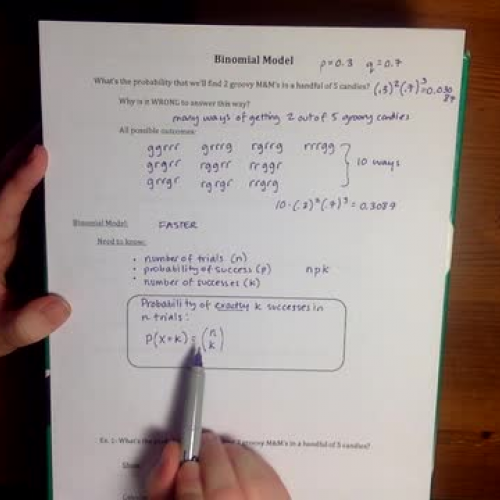 Binomial Model p=0.3 q=0.7
What's the probability that we'll find 2 groovy M&M's in a handful of 5 candies? (.3)²(.7)³=0.030
87
Why is it WRONG to answer this way?
many ways of getting 2 out of 5 groovy candies
All possible outcomes:
ggrrr grrrg rgrrg rrrgg
grgrr rggrr rrggr 10 ways
grrgr rgrgr rrgrg
10·(.3)²(.7)³=0.3087
Binomial Model: FASTER
Need to know:
• number of trials (n)
• probability of success (p) npk
• number of successes (k)
Probability of exactly k successes in
n trials:
P(X=k)=(n
k)
Ex. 1- What's the groovy M&M's in a handful of 5 candies?
Show